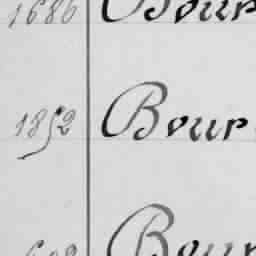 1686 Bour
1852 Bour
Bour